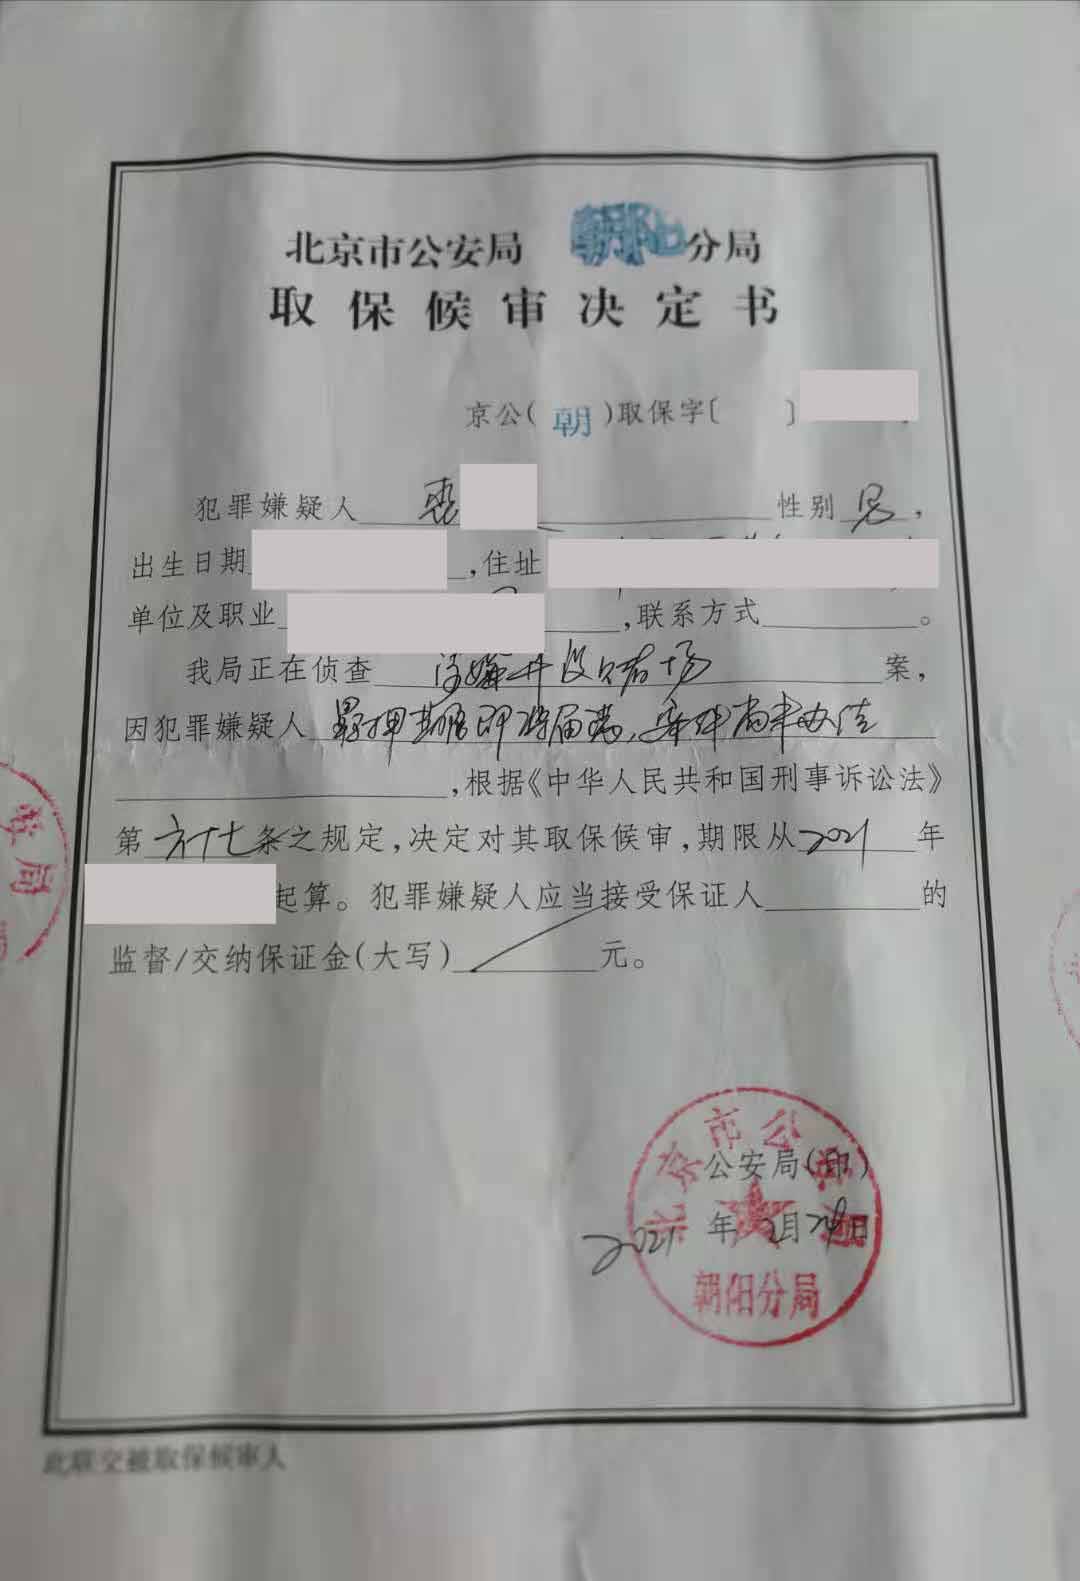 北京市公安局 朝阳分局
取保候审决定书
京公(朝)取保字[ ]
犯罪嫌疑人 性别 男,
出生日期 ,住址
单位及职业 ,联系方式 。
我局正在侦查 涉嫌开设赌场 案,
因犯罪嫌疑人 羁押期限即将届满,案件尚未办结
,根据《中华人民共和国刑事诉讼法》
第六十七条之规定,决定对其取保候审,期限从2021年
起算。犯罪嫌疑人应当接受保证人 的
监督/交纳保证金(大写) 元。
北京市公安局
公安局(印)
2021年2月 日
朝阳分局
此联交被取保候审人
安局